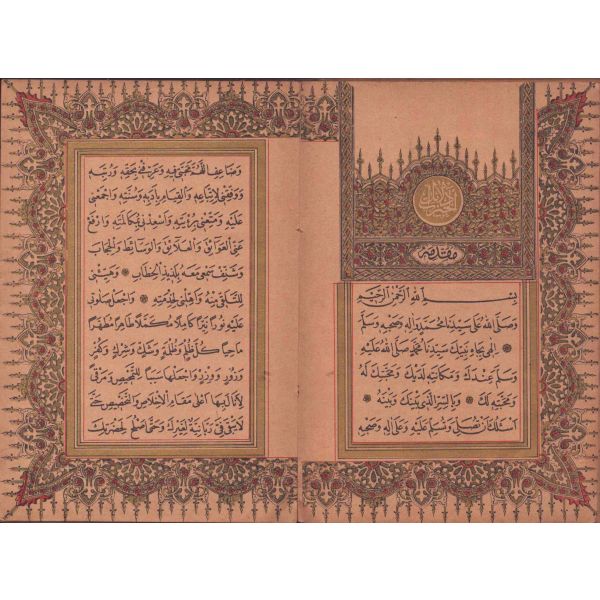 مقدمة
بسم الله الرحمن الرحيم
وَصَلَّى اللهُ عَلَى سَيِّدِنَا مُحَمَّدٍ وَاٰلِهِ وَصَحْبِهِ وَسَلَّمَ
اِلٰهِي بِجَاهِ نَبِيِّكَ سَيِّدِنَا مُحَمَّدٍ صَلَّى اللهُ عَلَيْهِ
وَسَلَّمَ عِنْدَكَ وَمَكَانَتِهِ لَدَيْكَ وَمَحَبَّتِكَ لَهُ
وَمَحَبَّتِهِ لَكَ وَبِالسِّرِّ الَّذِي بَيْنَكَ وَبَيْنَهُ
اَسْئَلُكَ اَنْ تُصَلِّيَ وَتُسَلِّمَ عَلَيْهِ وَعَلَى اٰلِهِ وَصَحْبِهِ
وَضَاعِفِ اللّٰهُمَّ مَحَبَّتِي فِيهِ وَعَرِّفْنِي بِحَقِّهِ وَرُتَبِهِ
وَوَفِّقْنِي لِاتِّبَاعِهِ وَالْقِيَامِ بِاَدَبِهِ وَسُنَّتِهِ وَاجْمَعْنِي
عَلَيْهِ وَمَتِّعْنِي بِرُؤْيَتِهِ وَاَسْعِدْنِي بِمُكَالَمَتِهِ وَارْفَعْ
عَنِّي الْعَوَائِقَ وَالْعَلَائِقَ وَالْوَسَائِطَ وَالْحِجَابَ
وَشَنِّفْ سَمْعِي مَعَهُ بِلَذِيذِ الْخِطَابِ وَهَيِّئْنِي
لِلتَّلَقِّي مِنْهُ وَاَهِّلْنِي لِخِدْمَتِهِ وَاجْعَلْ صَلَوٰتِي
عَلَيْهِ نُورًا نَيِّرًا كَامِلًا مُكَمَّلًا طَاهِرًا مُطَهِّرًا
مَاحِيًا كُلَّ ظُلْمٍ وَظُلْمَةٍ وَشَكٍّ وَشِرْكٍ وَكُفْرٍ
وَزُورٍ وَوِزْرٍ وَاجْعَلْهَا سَبَبًا لِلتَّمْحِيصِ وَمَرْقًى
لِاَنَالَ بِهَا اَعْلٰى مَقَامِ الْاِخْلَاصِ وَالتَّخْصِيصِ حَتّٰى
لَا يَبْقٰى فِيَّ رَبَّانِيَّةٌ لِغَيْرِكَ وَحَتّٰى اَصْلُحَ لِحَضْرَتِكَ